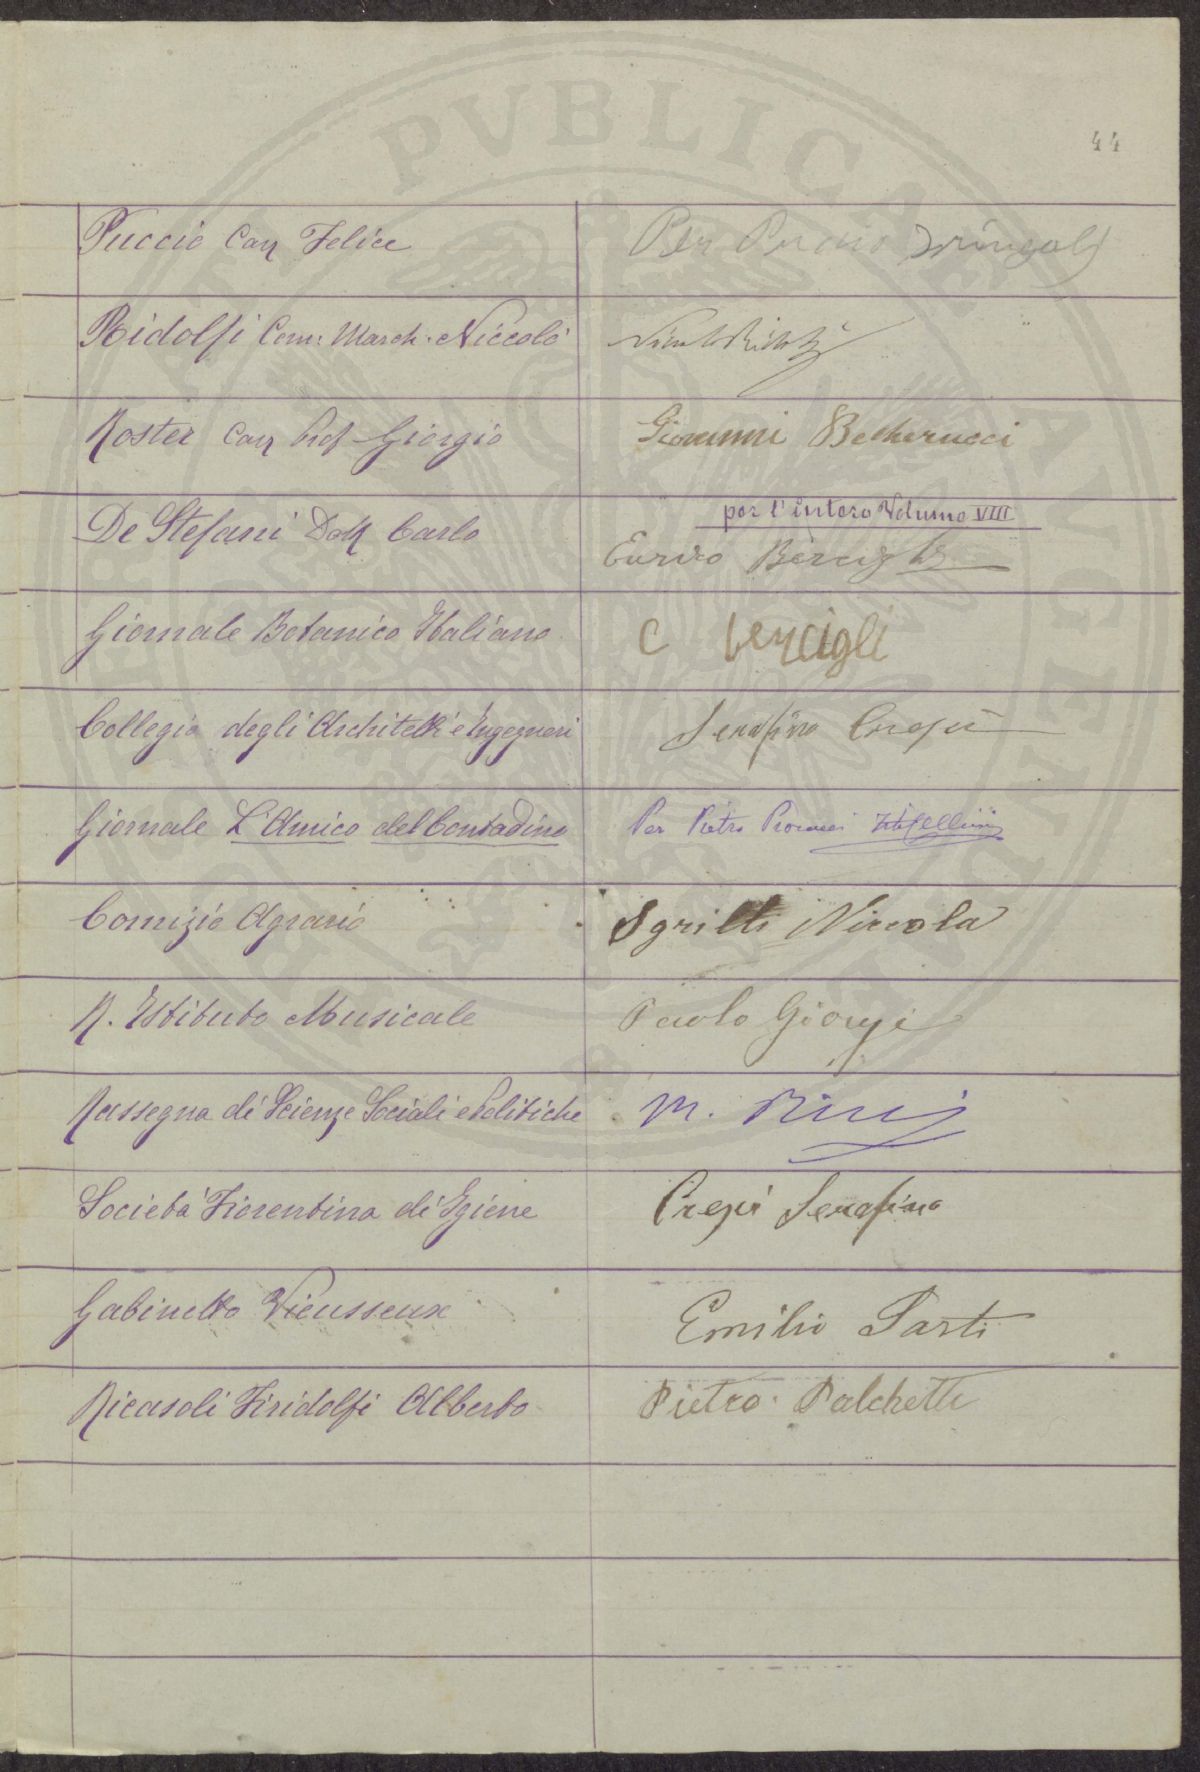 44
Puccio Cav Felice Per Puccio
Ridolfi Com: March: Niccolò
Roster Cav Prof Giorgio Giovanni Becherucci
per l'intero Volume VIII
De Stefani Dott Carlo Enrico Bercigli
Giornale Botanico Italiano C bercigli
Collegio degli Architetti e Ingegneri Serafino Crespi
Giornale L'Amico del Contadino Per Pietro
Comizio Agrario Sgrilli Niccola
R. Istituto Musicale Paolo Giorgi
Rassegna di Scienze Sociali e Politiche M. Ricci
Società Fiorentina di Igiene Crespi Serafino
Gabinetto Vieusseux Emilio Sarti
Ricasoli Firidolfi Alberto Pietro Palchetti